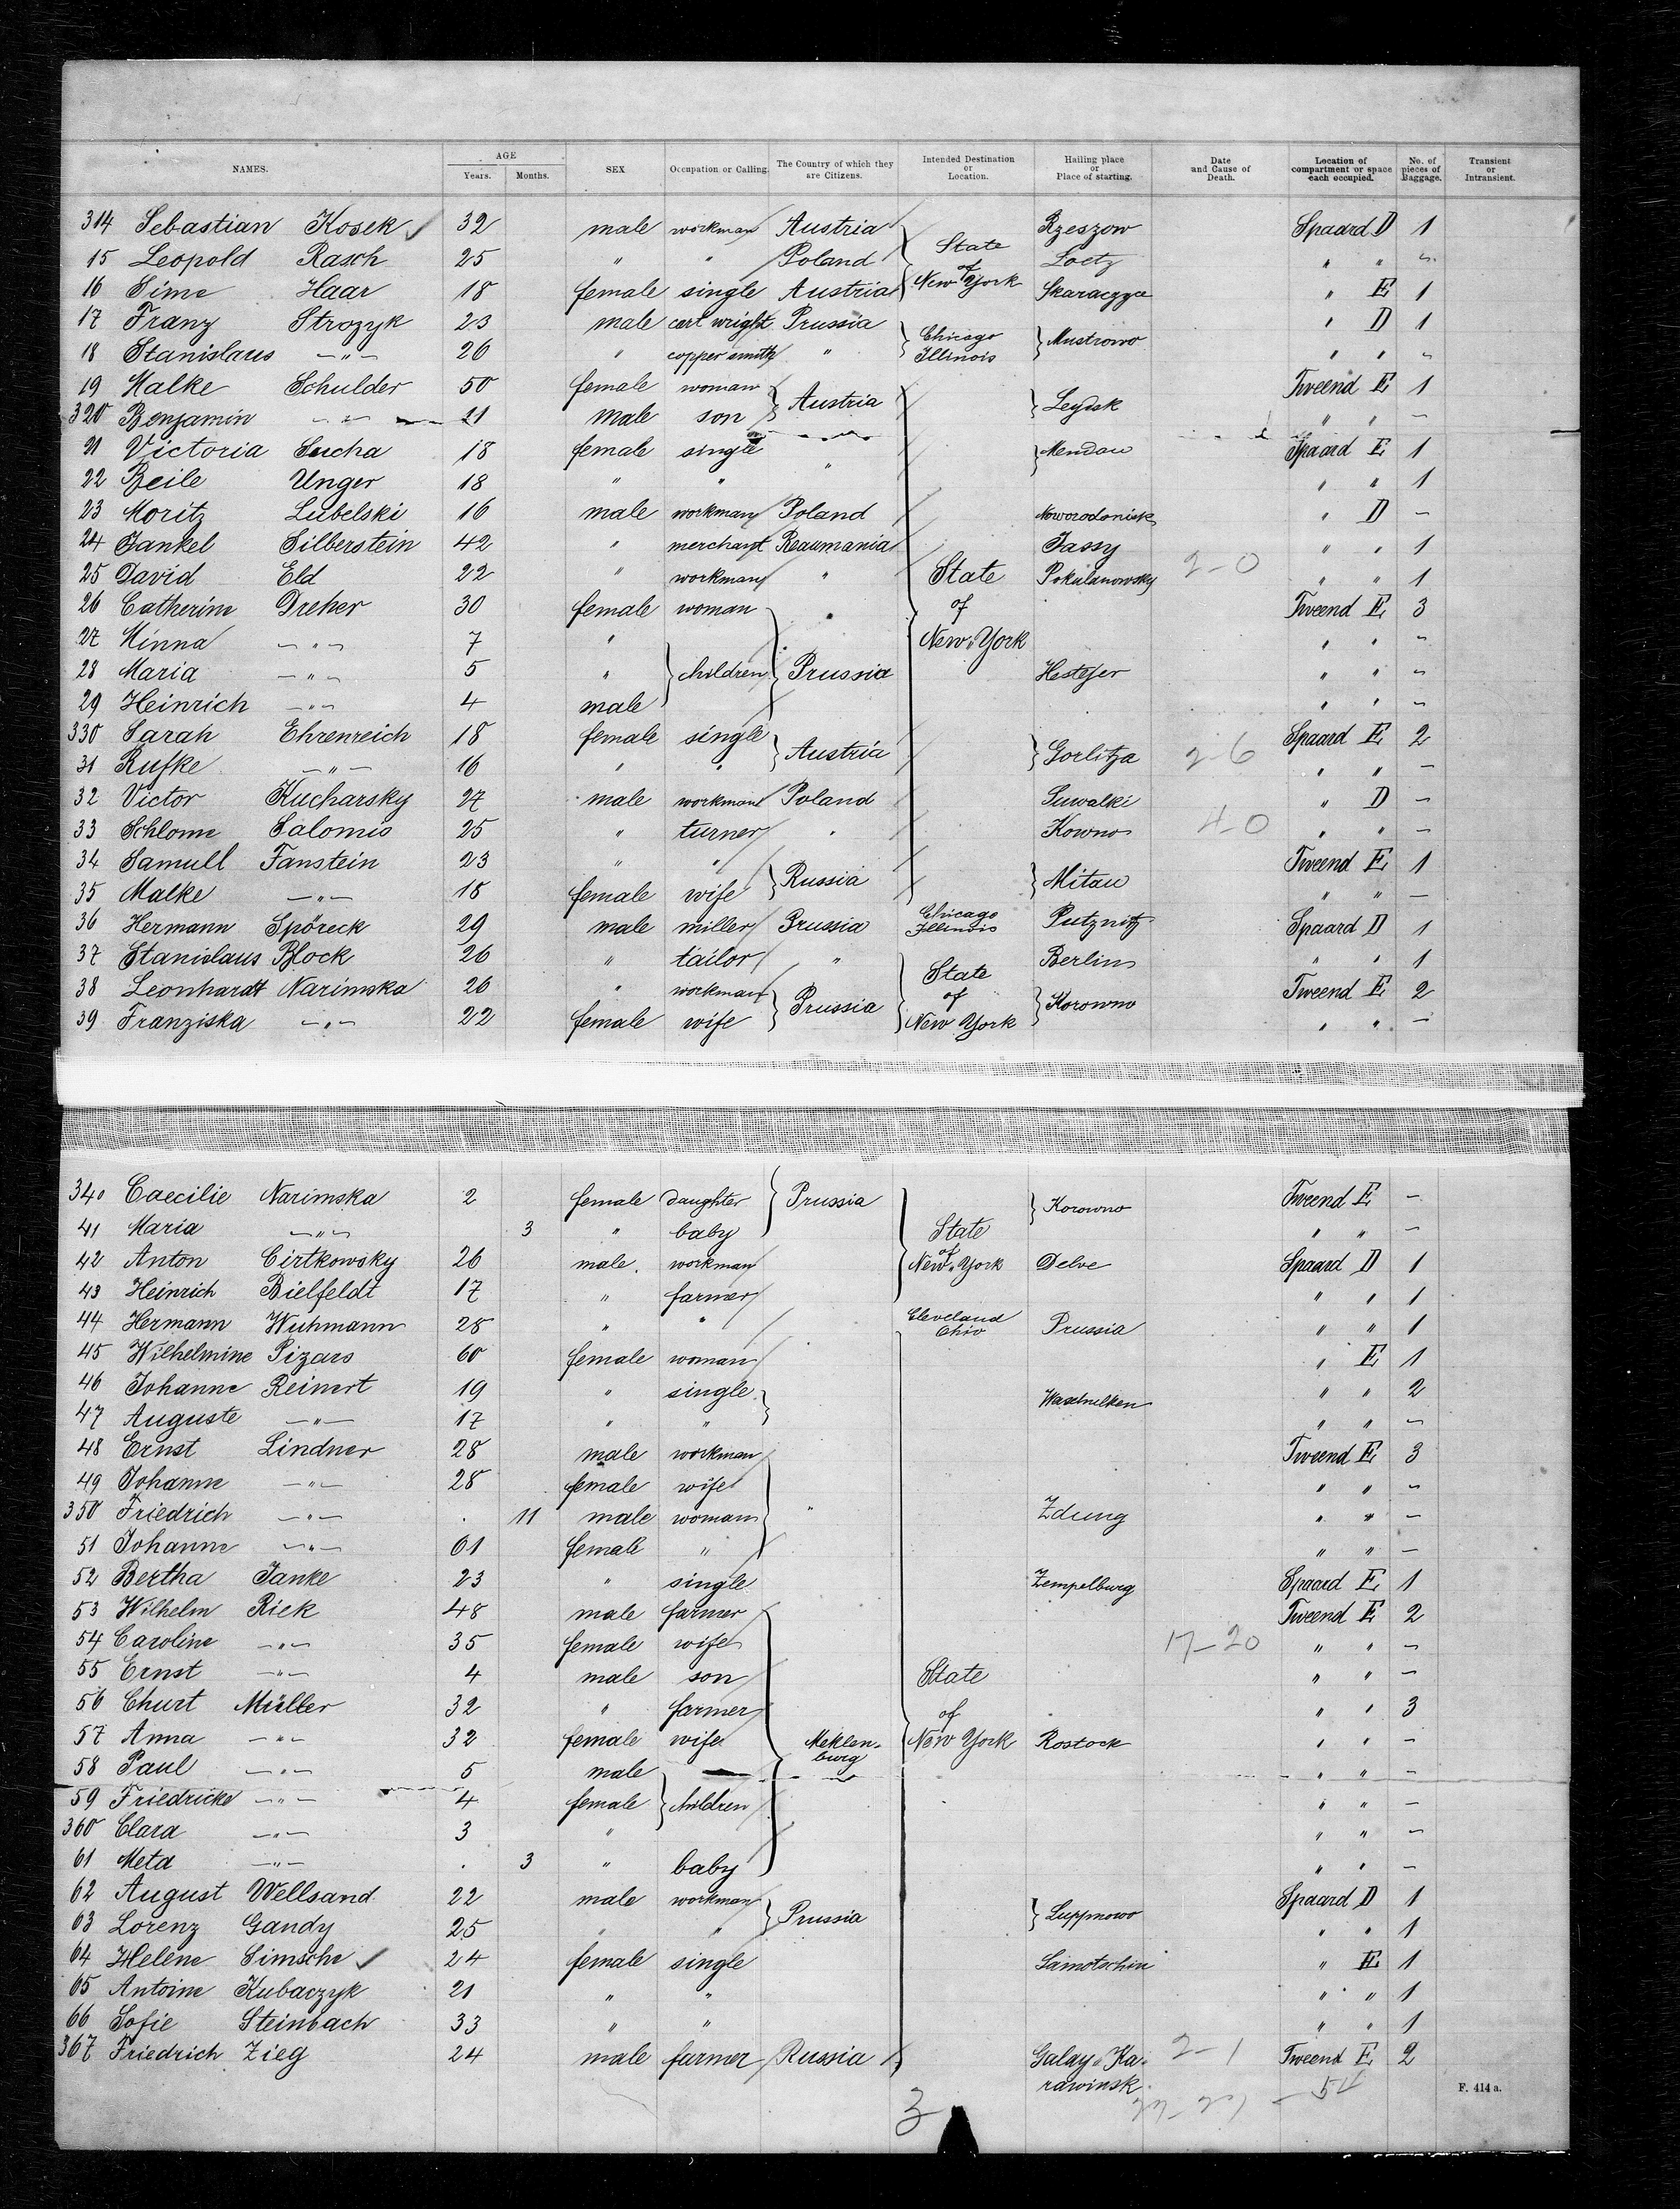 NAMES. AGE Years. Months. SEX Occupation or Calling. The Country of which they are Citizens. Intended Destination or Location. Hailing place or Place of starting. Date and Cause of Death. Location of compartment or space each occupied. No. of pieces of Baggage. Transient or Intransient.
314 Sebastian Kosek 32 male workman Austria State of New York Rzeszow Spaard D 1
15 Leopold Rasch 25 " " Poland Loetz " " "
16 Sime Haar 18 female single Austria Skaraczyce " E 1
17 Franz Strozyk 23 male cart wright Prussia Chicago Illinois Mustrowo " D 1
18 Stanislaus " 26 " copper smith " " " "
19 Malke Schulder 50 female woman Austria Leydsk Tweend E 1
320 Benjamin " 21 male son " " –
21 Victoria Sucha 18 female single " Mendau Spaard E 1
22 Beile Unger 18 " " " " 1
23 Moritz Lubelski 16 male workman Poland Noworodonisk " D –
24 Jankel Silberstein 42 " merchant Reaumania Jassy " " 1
25 David Eld 22 " workman " State of New York Pokulanowsky 2-0 " " 1
26 Catherine Dreher 30 female woman " Tweend E 3
27 Minna " 7 " " " "
28 Maria " 5 " children Prussia Hestejer " " "
29 Heinrich " 4 male " " "
330 Sarah Ehrenreich 18 female single Austria Gorlitza 2-6 Spaard E 2
31 Rufke " 16 " " " " –
32 Victor Kucharsky 27 male workman Poland Suwalki " D –
33 Schlome Salomis 25 " turner " Kowno 4-0 " " –
34 Samull Fanstein 23 " " Russia Mitau Tweend E 1
35 Malke " 18 female wife " " –
36 Hermann Spöreck 29 male miller Prussia Chicago Illinois Putznitz Spaard D 1
37 Stanislaus Block 26 " tailor " State of New York Berlin " " 1
38 Leonhardt Narimska 26 " workman Prussia Korowno Tweend E 2
39 Franziska " 22 female wife " " –
340 Caecilie Narimska 2 female daughter Prussia State of New York Korowno Tweend E –
41 Maria " 3 " baby " " –
42 Anton Cirtkowsky 26 male workman Delve Spaard D 1
43 Heinrich Bielfeldt 17 " farmer " " 1
44 Hermann Wuhmann 28 " " Cleveland Ohio Prussia " " 1
45 Wilhelmine Pizars 60 female woman " E 1
46 Johanne Reinert 19 " single Waschulken " " 2
47 Auguste " 17 " " " " –
48 Ernst Lindner 28 male workman Tweend E 3
49 Johanne " 28 female wife " " –
350 Friedrich " 11 male woman " Zdung " " –
51 Johanne " 61 female " " " –
52 Bertha Janke 23 " single Zempelburg Spaard E 1
53 Wilhelm Rick 48 male farmer Tweend E 2
54 Caroline " 35 female wife 17-20 " " –
55 Ernst " 4 male son State of New York " " –
56 Churt Müller 32 " farmer " " 3
57 Anna " 32 female wife Meklenburg Rostock " " –
58 Paul " 5 male children " " –
59 Friedricke " 4 female " " –
360 Clara " 3 " " " –
61 Meta " 3 " baby " " –
62 August Wellsand 22 male workman Prussia Luppnowo Spaard D 1
63 Lorenz Gandy 25 " " " " 1
64 Helene Simsche 24 female single Samotschin " E 1
65 Antoine Kubaczyk 21 " " " " 1
66 Sofie Steinbach 33 " " " " 1
367 Friedrich Zieg 24 male farmer Russia Galay-Ka- 2-1 Tweend E 2
rawinsk
3
54
F. 414 a.